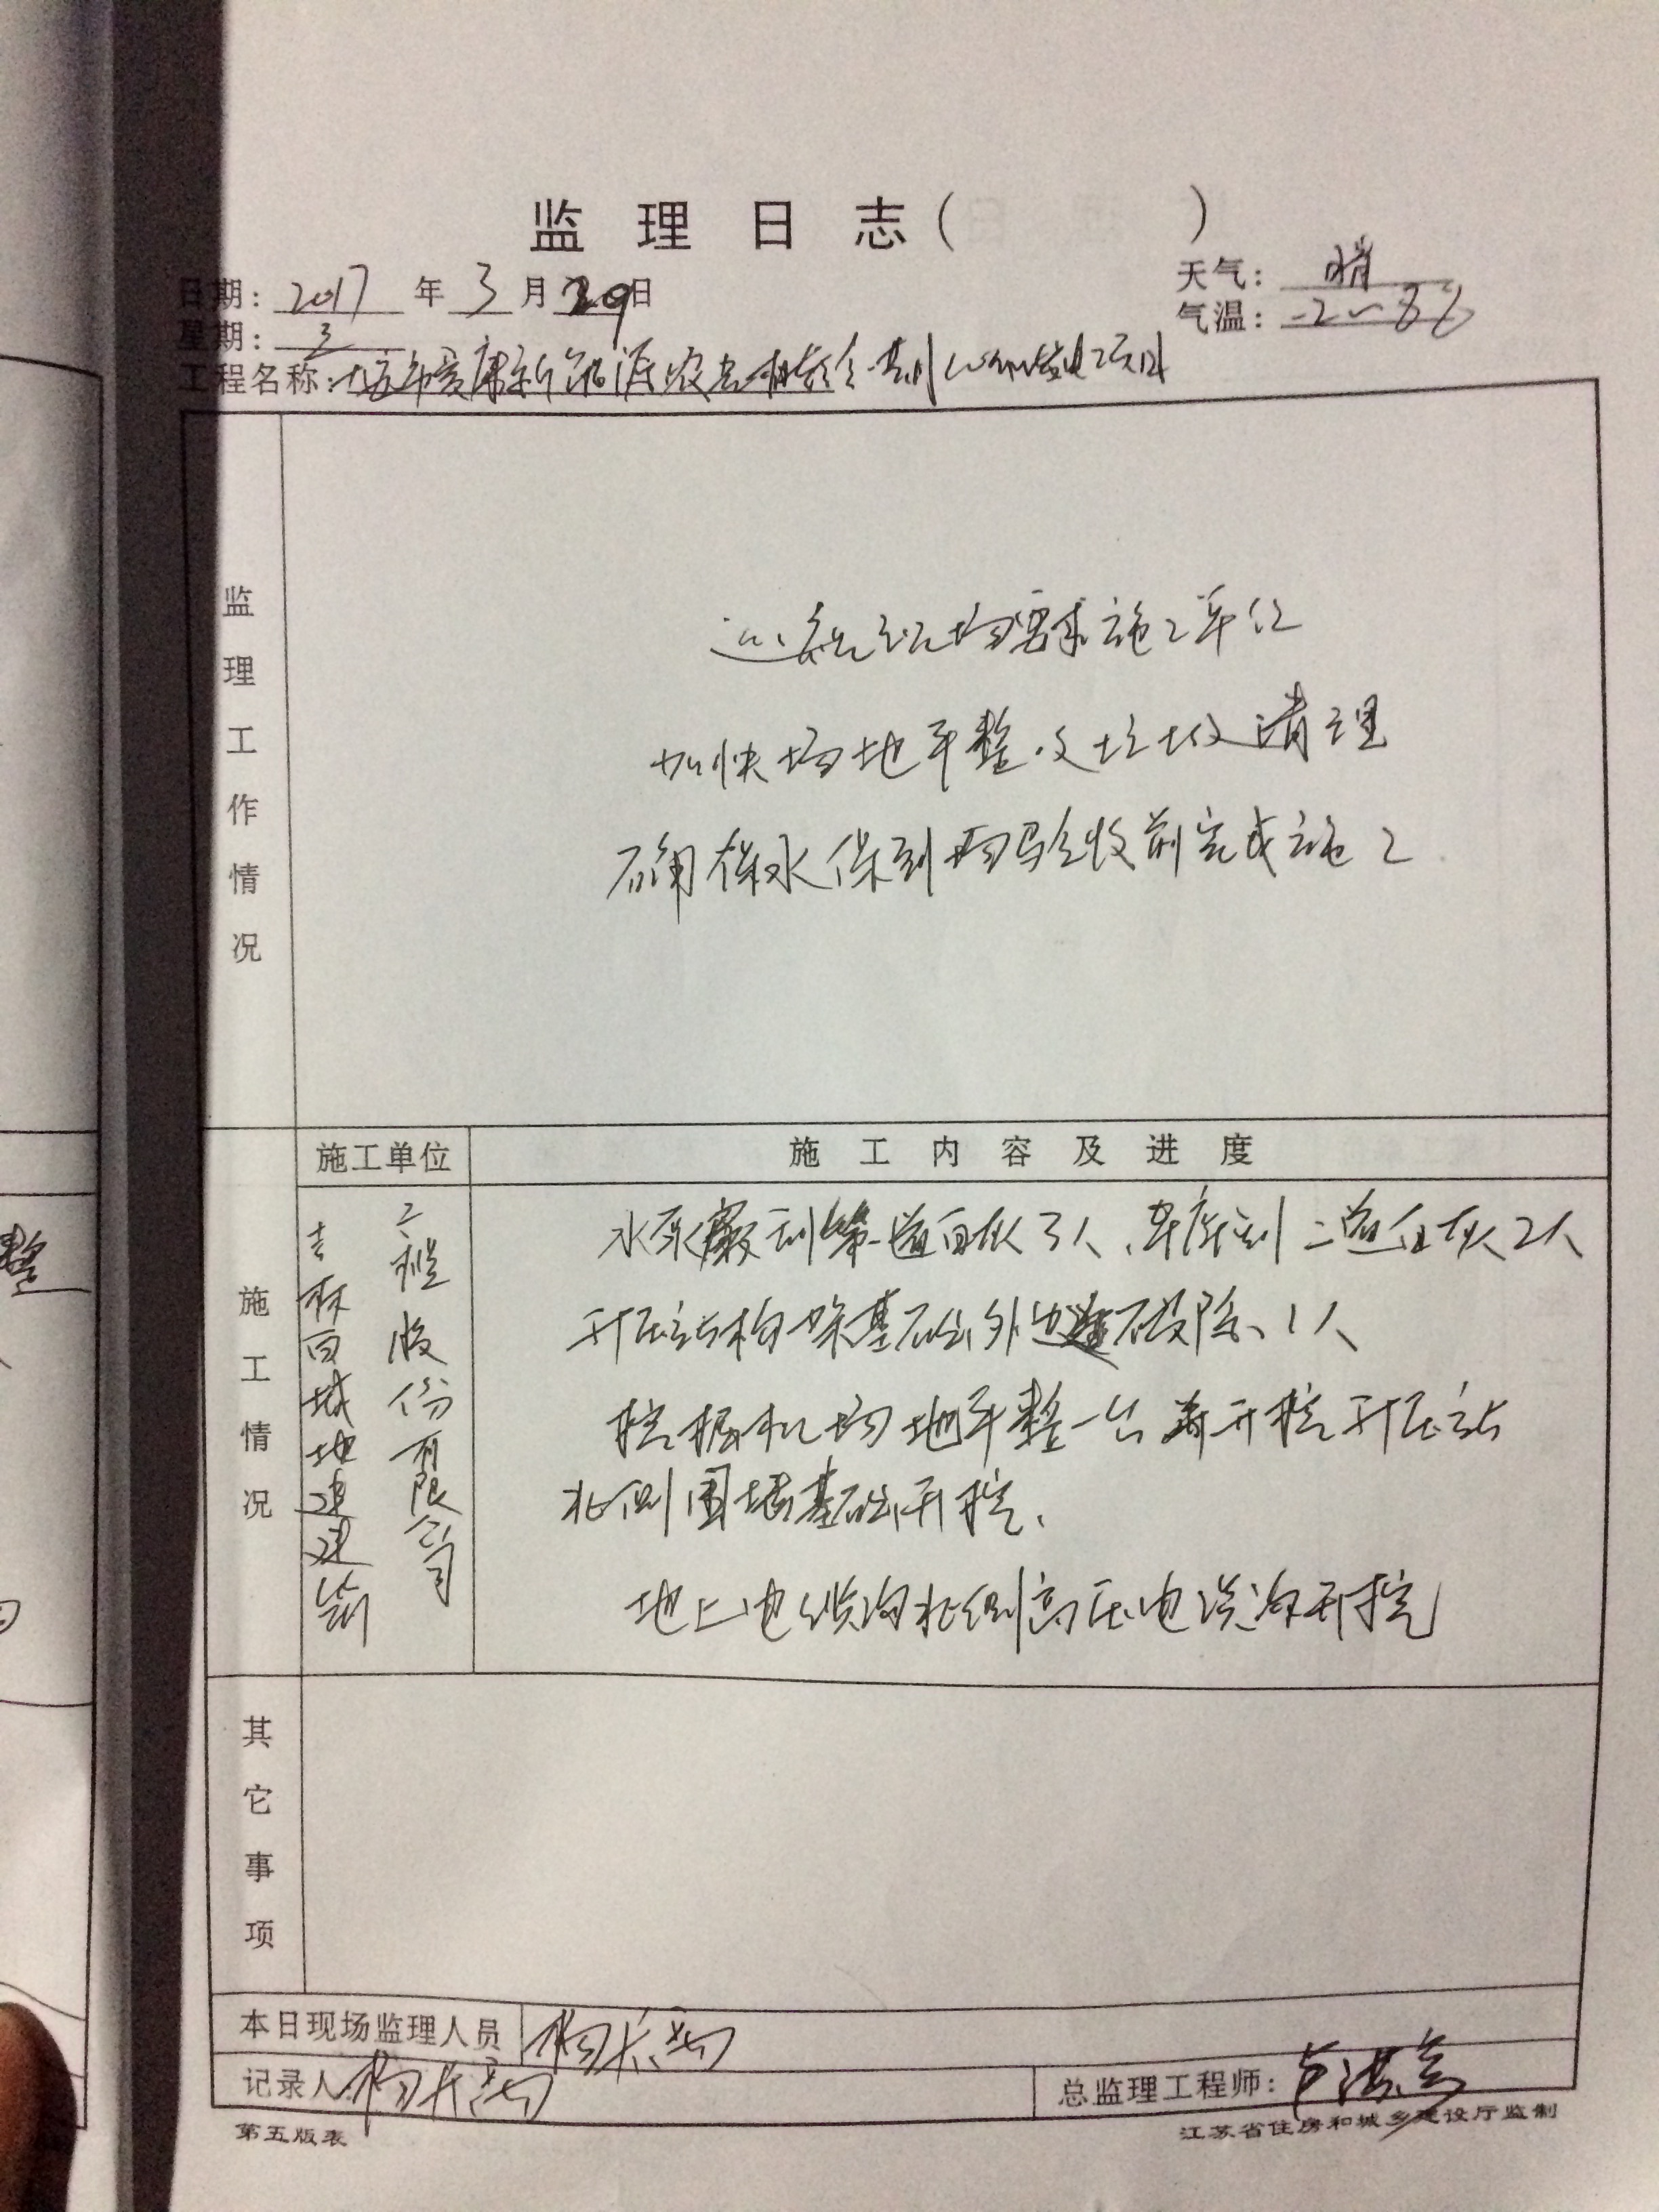 监理日志（ ）
日期：2017年3月29日
天气：晴
星期：3
气温：-2~8℃
工程名称：新能源农 发电项目
监理工作情况
巡视现场要求施工单位
加快场地平整及垃圾清理
确保水保到场验收前完成施工
施工单位
施工内容及进度
施工情况
吉林百城地建建筑
工程股份有限公司
水泵房刮第一道白灰3人、车库刮二道白灰2人
升压站构架基础外边破除、1人
挖掘机场地平整一台并开挖升压站
北侧围墙基础开挖、
地上电缆沟北侧高压电缆沟开挖
其它事项
本日现场监理人员
记录人：
总监理工程师：
第五版表
江苏省住房和城乡建设厅监制
整